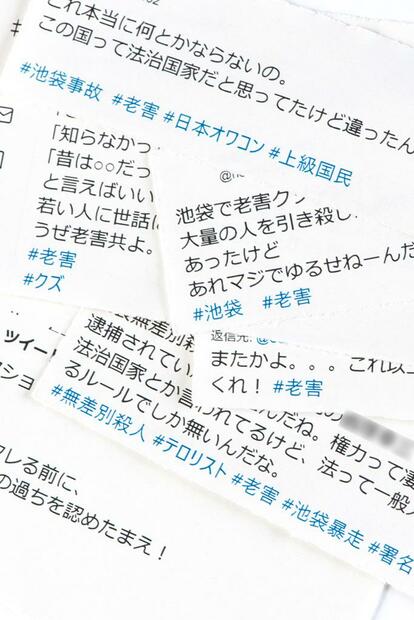 これ本当に何とかならないの。
この国って法治国家だと思ってたけど違ったん
#池袋事故 #老害 #日本オワコン #上級国民
「知らなかっ
「昔は○○だっ
と言えばいい
若い人に世話
うぜ老害共よ。
#老害
#クズ
池袋で老害ク
大量の人を引き殺し
あったけど
あれマジでゆるせねーんだ
#池袋 #老害
返信先:
またかよ。。。これ以
くれ! #老害
無差別殺
逮捕されてい
んだね。権力って凄
法治国家とか言われてるけど、法って一般人
るルールでしか無いんだな。
#無差別殺人 #テロリスト #老害 #池袋暴走 #署名
ツイー
ショ
る前に、
の過ちを認めたまえ!